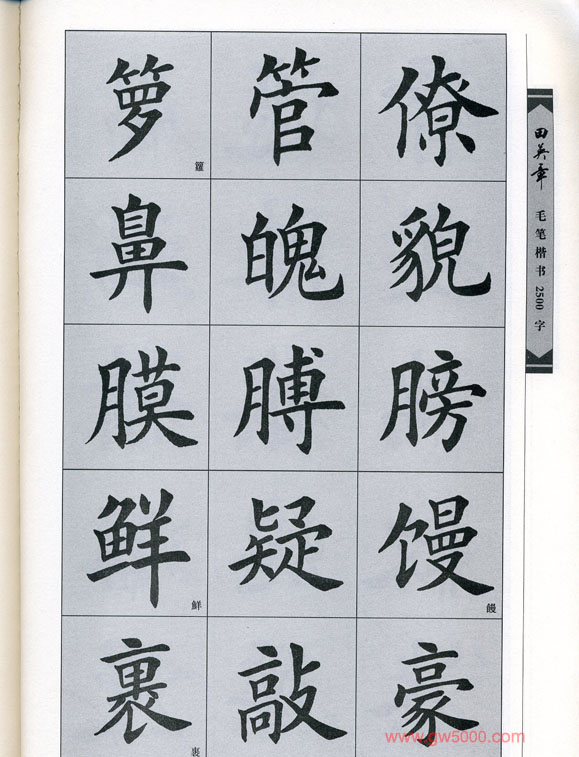 箩 籮 管 僚
鼻 魄 貌
膜 膊 膀
鲜 鮮 疑 馒 饅
裹 裹 敲 豪
田英章
毛笔楷书2500字
www.gw5000.com